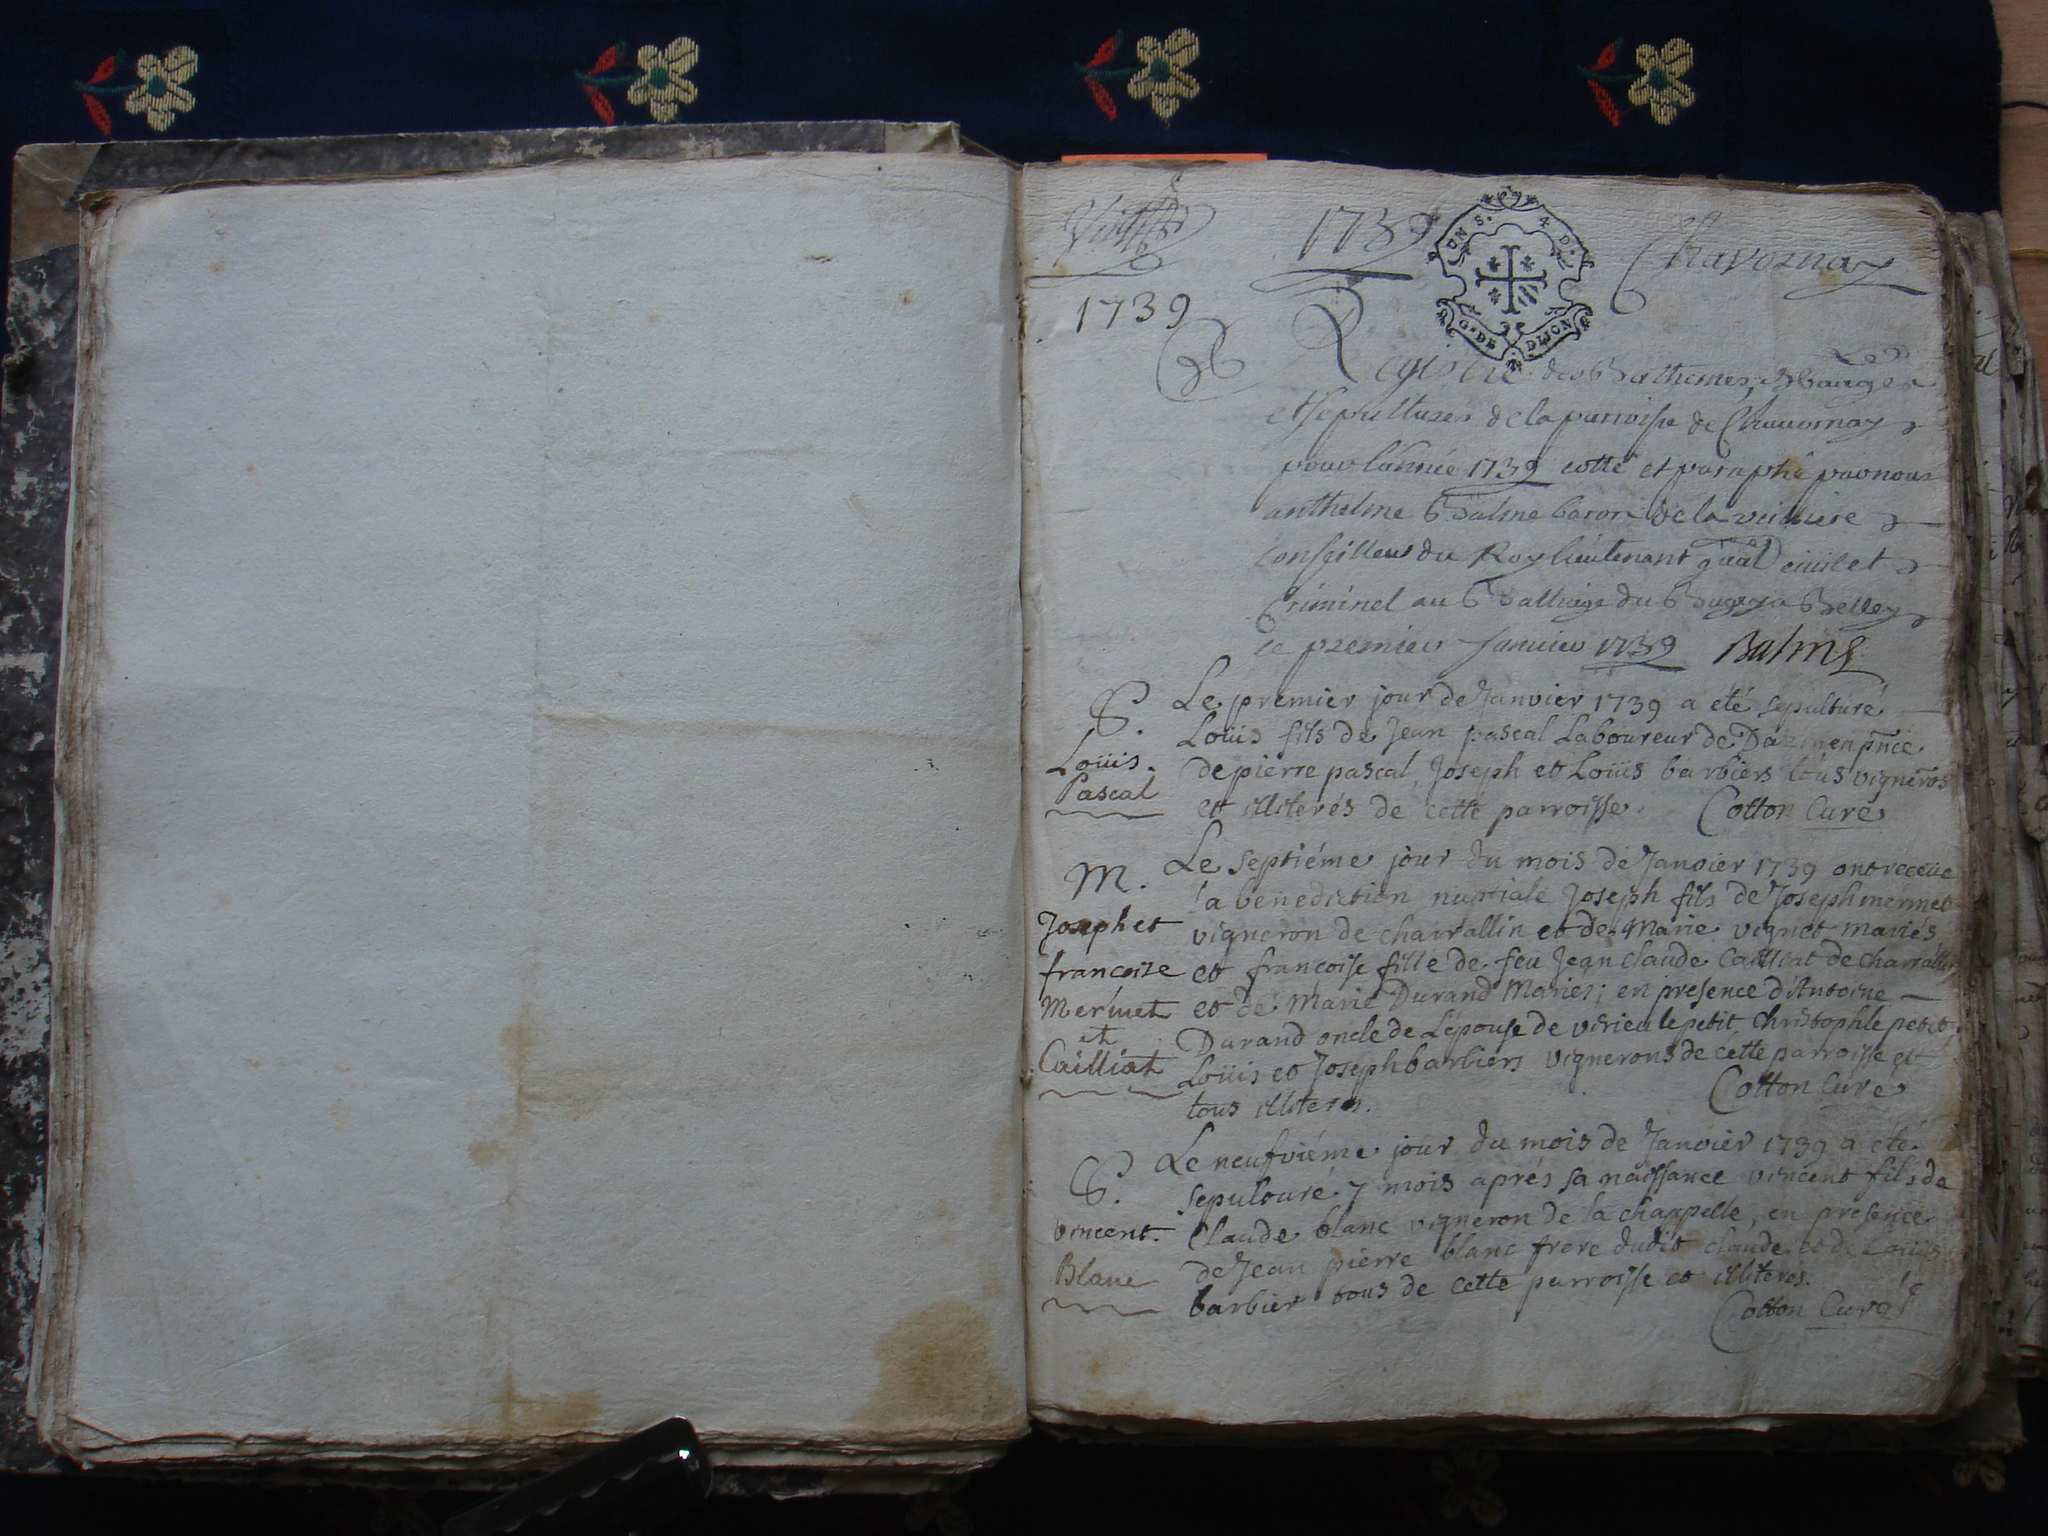 1739
Chavornay
UN S. 4 D.
G. DE DIJON
1739
Registre des Bathemes, Mariages
et sepultures de la parroisse de Chavornay
pour l'année 1739 cotté et paraphé par nous
anthelme Balme baron de la
Conseiller du Roy lieutenant gnal civil et
Criminel au Balliage du Bugey a Belley
le premier Janvier 1739 Balme
S.
Loüis
Pascal
Le premier jour de Janvier 1739 a eté sepulturé
Loüis fils de Jean pascal Laboureur de Dazin en pnce
de pierre pascal, Joseph et Loüis barbiers tous vignerõs
et illiterés de cette parroisse. Cotton Curé
M.
Joseph et
francoise
Mermet
et
Cailliat
Le septiéme jour du mois de Janvier 1739 ont receüe
la benediction nuptiale Joseph fils de Joseph mermet
vigneron de charvallin et de Marie vignet mariés
et francoise fille de feu Jean claude Cailliat de
et de Marie Durand Mariés; en presence d'Antoine
Durand oncle de L'épouse de virieu le petit, Christophle petit
Loüis et Joseph barbiers vignerons de cette parroisse et
tous illiterés. Cotton Curé
S.
vincent
Blanc
Le neufviéme jour du mois de Janvier 1739 a eté
sepulturé 7 mois aprés sa naissance vincent fils de
Claude blanc vigneron de la chappelle, en presence
de Jean pierre blanc frere dudit claude et de Loüis
barbier tous de cette parroisse et illiterés.
Cotton Curé